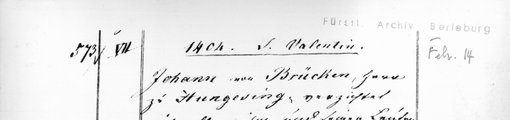 Fürstl. Archiv Berleburg
573/ VII
1404. S. Valentin.
Febr. 14
Johann von Brücken, Herr
zu Hungering, verzichtet
und seinen Leuten